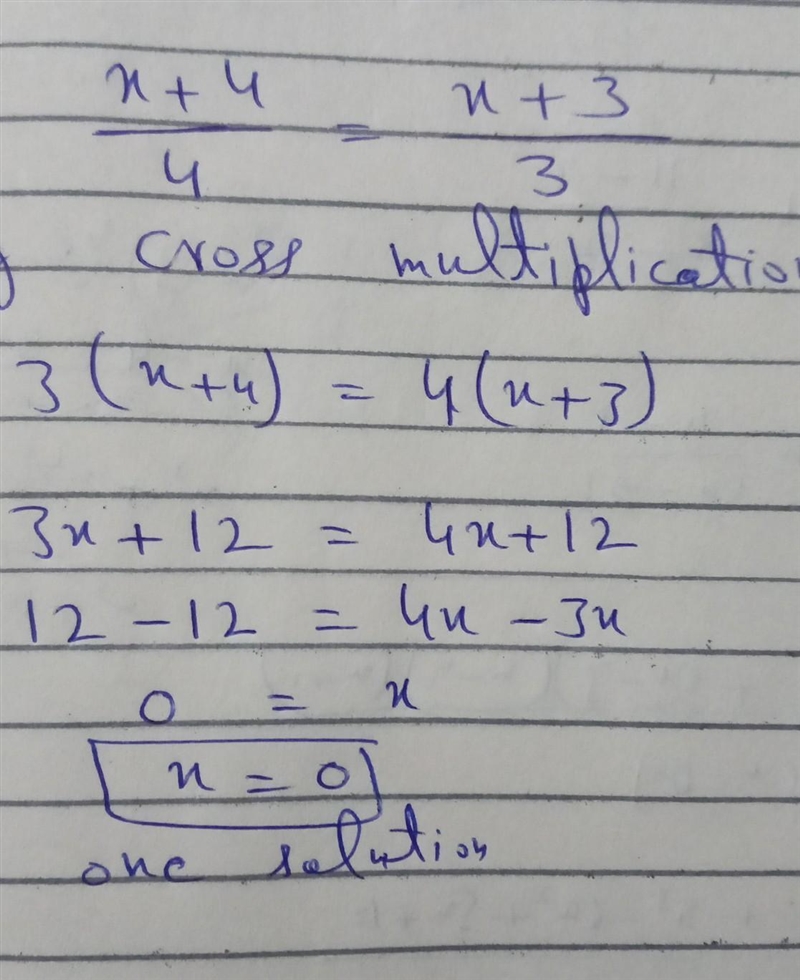 x + 4 = x + 3
4 3
cross multiplication
3 (x+4) = 4 (x+3)
3x + 12 = 4x + 12
12 - 12 = 4x - 3x
0 = x
x = 0
one solution